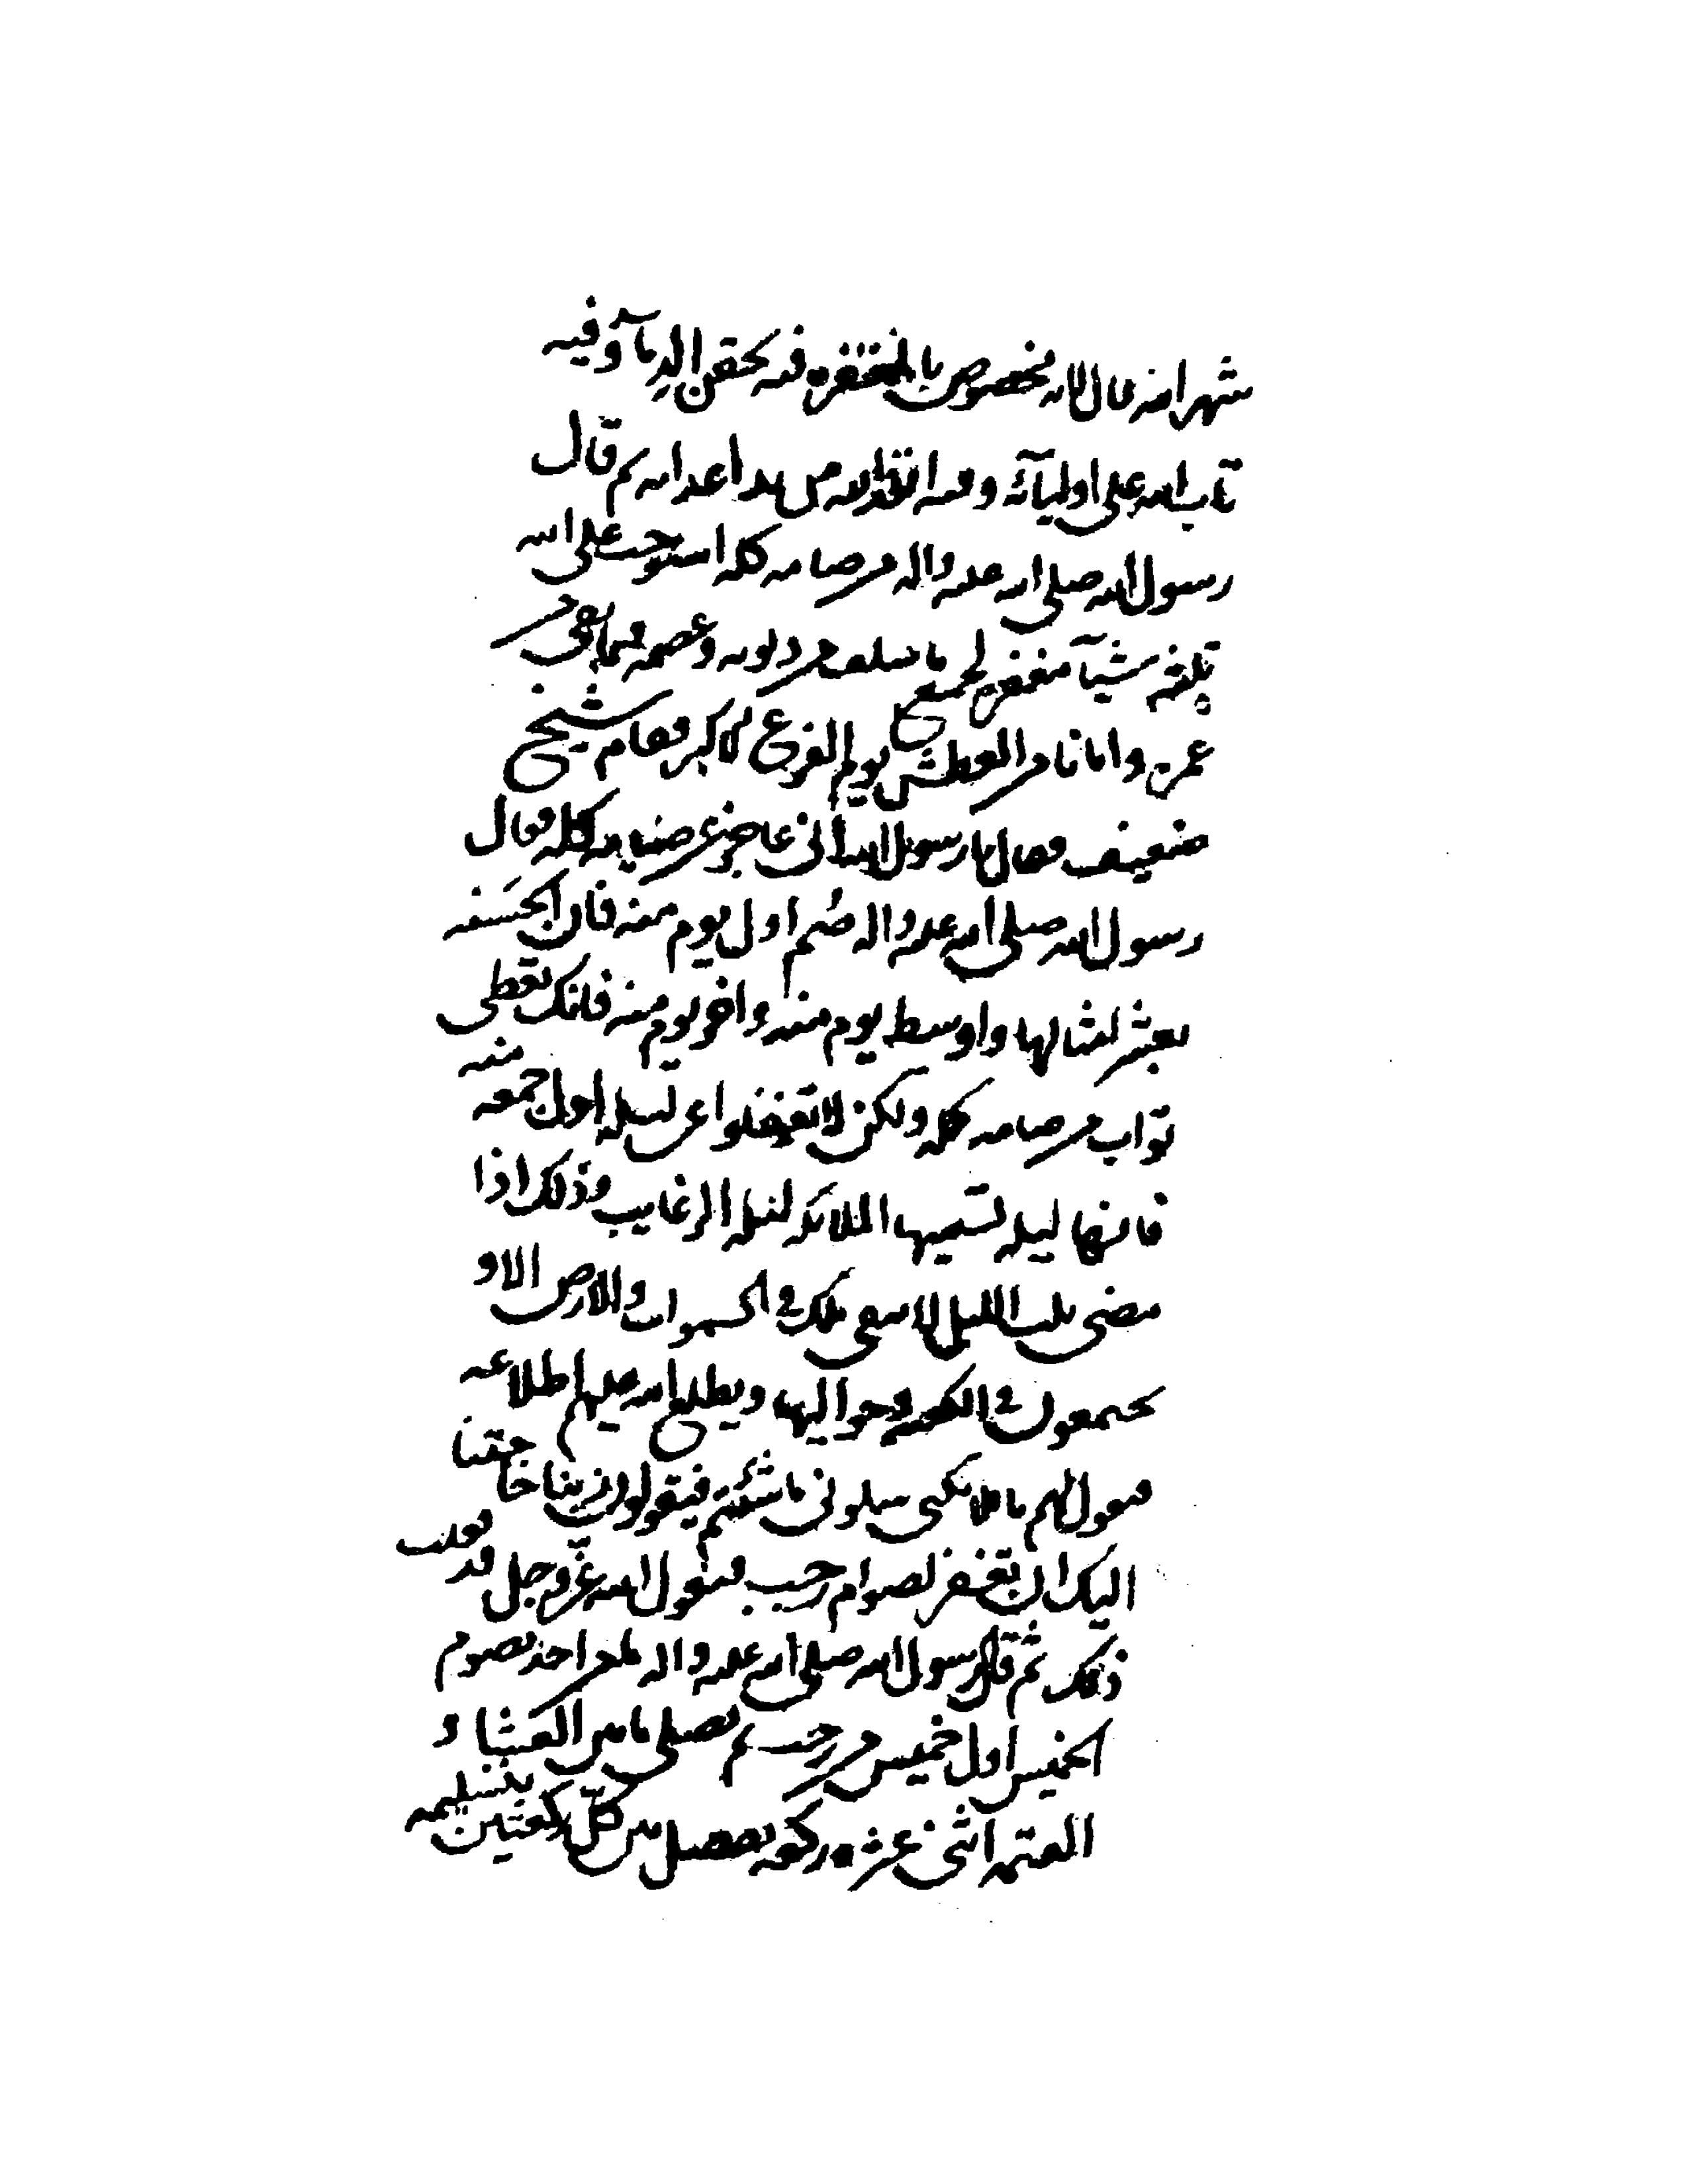 شهر الله قال لانه مخصوص بالمغفرة فيه يحقن الدمآ وفيه
تاب الله على اوليآئه وفيه انقذهم من يد اعدائه ثم قال
رسول الله صلى الله عليه واله من صامه كله استوجب على الله
ثلثة اشيآ مغفرة لجميع ما سلف من ذنوبه وعصمة فيما بقى من
عمره وامانا من العطش يوم الفزع الاكبر فقام شيخ
ضعيف فقال يا رسول الله انى عاجز عن صيامه كله فقال
رسول الله صلى الله عليه واله صُم اول يوم منه فان الحَسَنه
بعشر امثالها واوسط يوم منه واخر يوم منه فانك تعطى
ثواب من صامه كله ولكن لا تغفلوا عن ليلة اول جمعه منه
فانها ليله تسميها الملائكه ليلة الرغايب وذلك اذا
مضى ثلث الليل لا يبقى ملك فى السموات والارض الا و
يجتمعون فى الكعبه وحواليها ويطلع الله عليهم اطلاعه
فيقول لهم يا ملائكتى سلونى ما شئتم فيقولون ربنا حاجتنا
اليك ان تغفر لصوام رجب فيقول الله عزّ وجل قد فعلت
ذلك ثم قال رسول الله صلى الله عليه واله ما من احد يصوم
الخميس اول خميس من رجب ثم يصلى ما بين العشاء و
العتمه اثنى عشره ركعه يفصل بين كلّ ركعتين بتسليمه